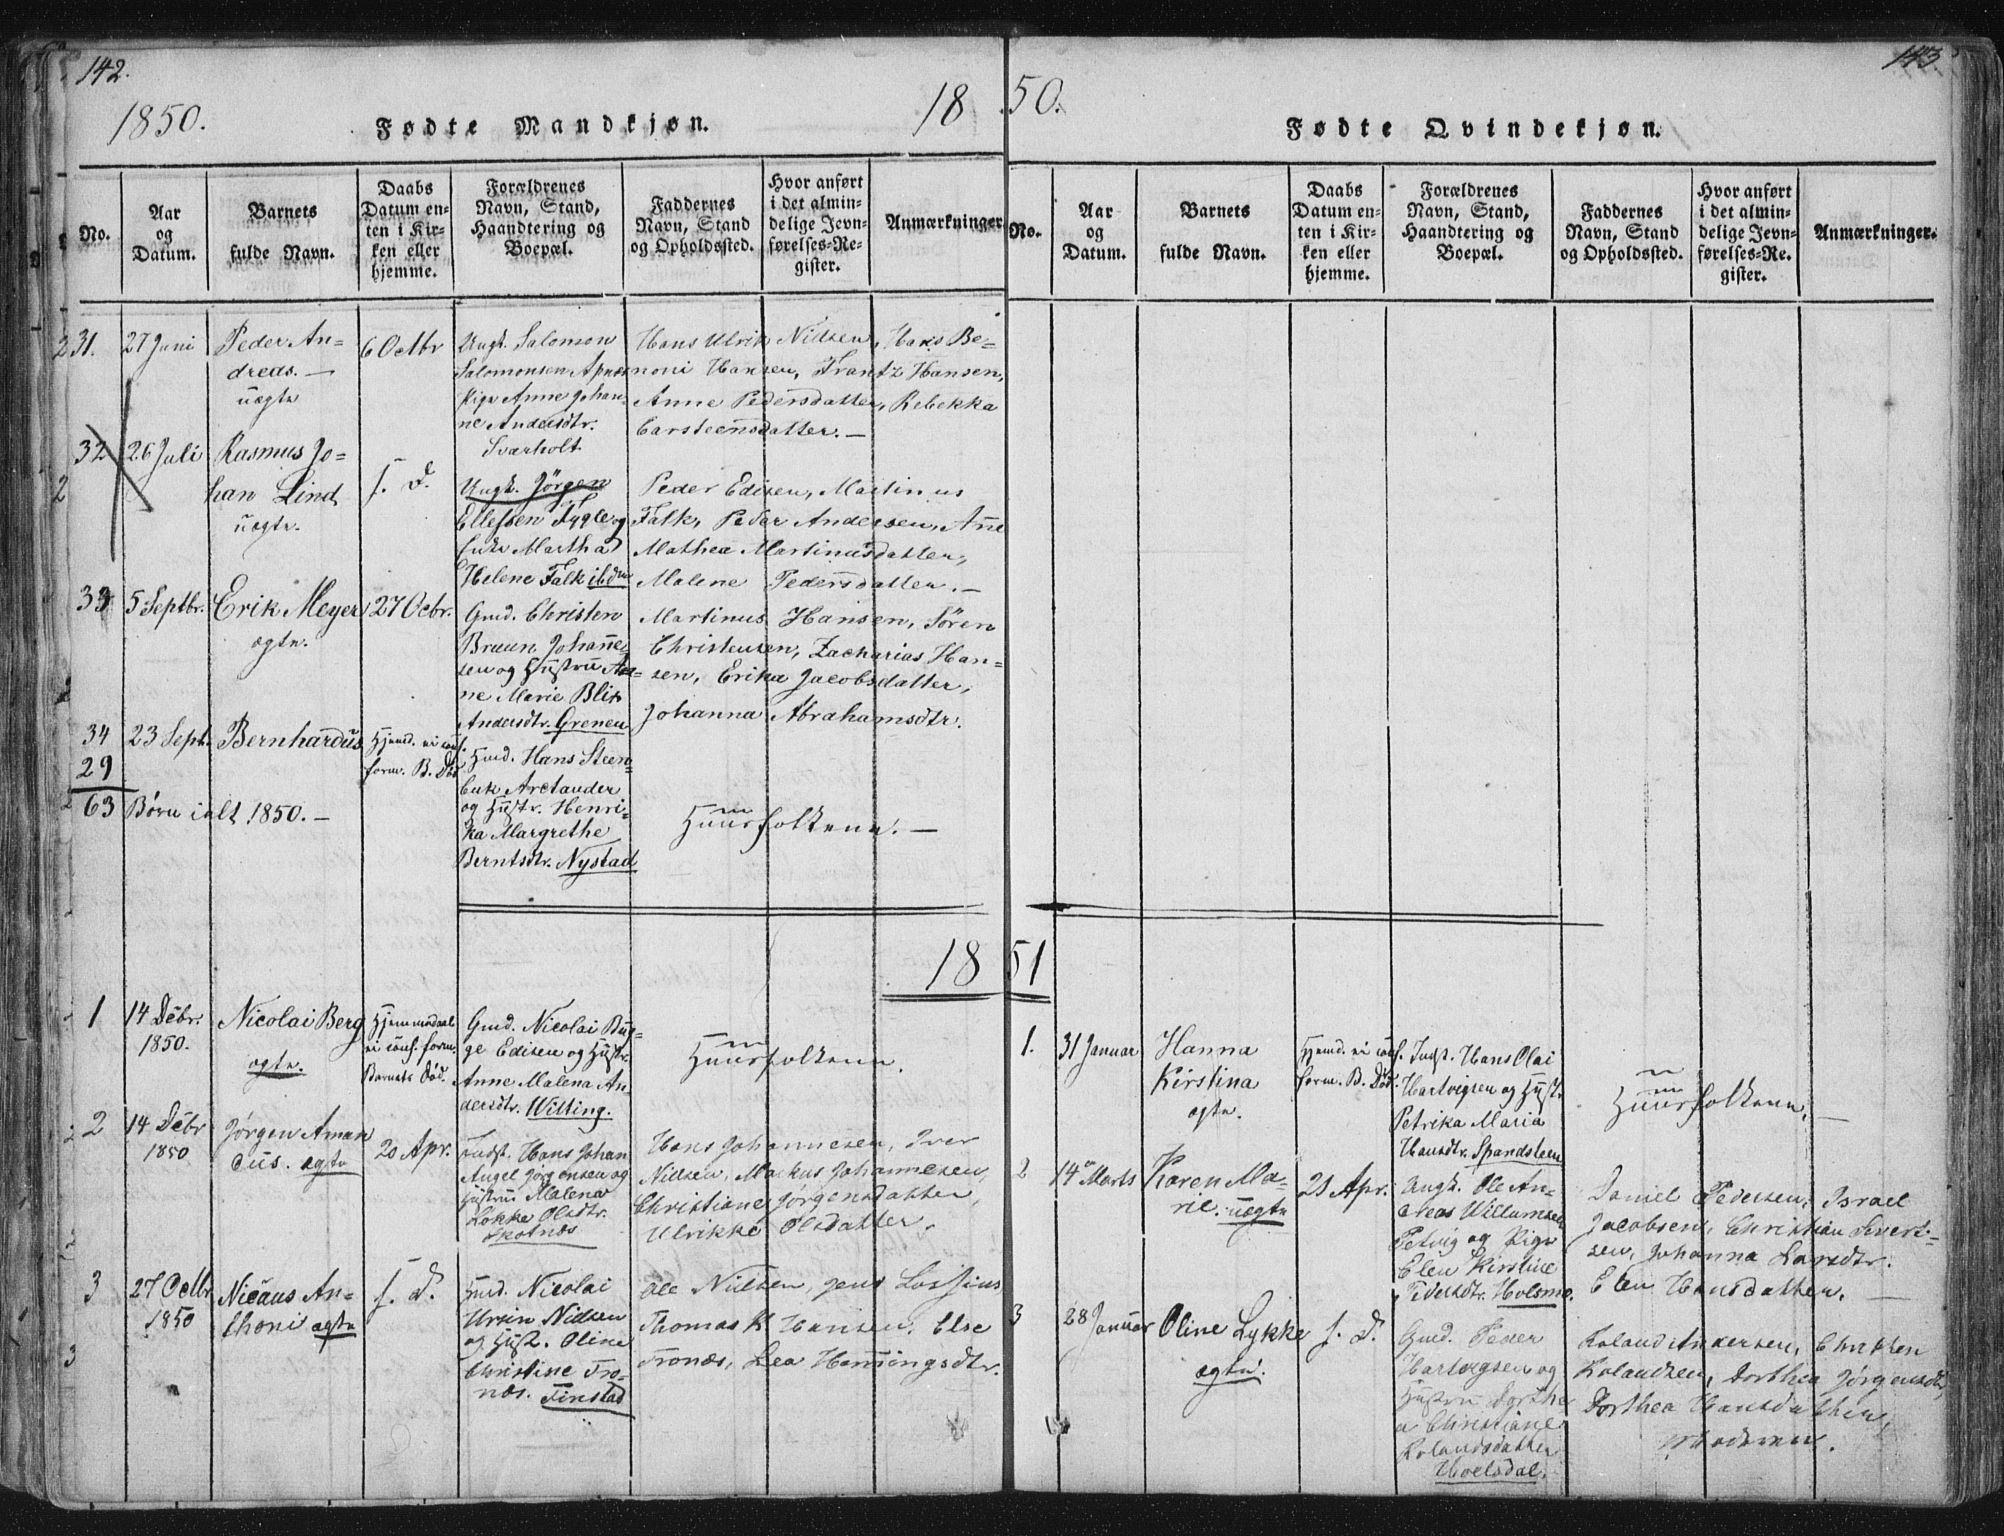 142.
1850.
Fødte Mandkjøn.
18
No.
Aar og Datum.
Barnets fulde Navn.
Daabs Datum enten i Kirken eller hjemme.
Forældrenes Navn, Stand, Haandtering og Boepæl.
Faddernes Navn, Stand og Opholdssted.
Hvor anført i det almindelige Jevnførelses-Register.
Anmærkninger
31.
27 Juni
Peder An-
dreas. —
uægte
6 Octbr
Ungk. Salomon
Salomonsen Apnæs
Pige Anne Johan-
ne Andersdtr.
Svarholt
Hans Ulrik Nilsen, Hans Be-
noni Hansen, Frantz Hansen,
Anne Pedersdatter, Rebekka
Carsteensdatter. —
32
26 Juli
Rasmus Jo-
han Lind
uægte.
s. D.
Ungk. Jørgen
Ellefsen Fygle og
Enke Martha
Helene Falk ibdm
Peder Edisen, Martinus
Falk, Peder Andersen, Ane
Mathea Martinusdatter,
Malene Pedersdatter. —
33
5 Septbr.
Erik Meyer
ægte.
27 Octbr.
Gmd. Christen
Bruun Johanne-
sen og Hustru An-
ne Marie Blix
Andersdtr. Grenen
Martinus Hansen, Søren
Christensen, Zacharias Han-
sen, Erika Jacobsdatter,
Johanna Abrahamsdtr.
34
23 Sept.
Bernhardus
Hjemd. ei conf.
form. B. Død
Hmd. Hans Steen-
buk Arctander
og Hustr. Henri-
ka Margrethe
Berntsdtr. Nystad
Huusfolkene. —
29
63 Børn ialt 1850. —
18
1
14 Decbr.
1850.
Nicolai Berg
ægte.
Hjemmedaab
ei conf. form.
Barnets Død.
Gmd. Nicolai Bug-
ge Edisen og Hustr.
Anne Malena An-
dersdtr. Wilting.
Huusfolkene.
2
14 Decbr
1850
Jørgen Aman
dus. ægte
20 Apr.
Indst. Hans Johan
Angel Jørgensen og
Hustru Malena
Løkke Olsdtr.
Skotnæs
Hans Johannesen, Iver
Nilsen, Markus Johannesen,
Christiane Jørgensdatter,
Ulrikke Olsdatter.
3
27 Octbr
1850
Nicaus An-
thoni ægte
s. D.
Hmd. Nicolai
Ursin Nilsen
og Hust. Oline
Christine Tro-
næs. Finstad
Ole Nilsen, Jens Lossius,
Thomas K Hansen, Else
Tronæs, Lea Hemingsdtr.
143
50.
Fødte Qvindekjøn.
No.
Aar og Datum.
Barnets fulde Navn.
Daabs Datum enten i Kirken eller hjemme.
Forældrenes Navn, Stand, Haandtering og Boepæl.
Faddernes Navn, Stand og Opholdssted.
Hvor anført i det almindelige Jevnførelses-Register.
Anmærkninger.
51
1.
31 Januar
Hanna
Kirstina
ægte.
Hjemd. ei conf.
form. B. Død.
Indst. Hans Olai
Hartvigsen og Hust.
Petrika Maria
Hansdtr. Spandsteen
Huusfolkene. —
2
14 Marts
Karen Ma-
rie. uægte
21 Apr.
Ungk. Ole An-
dreas Willumsen
og Pige
Elen Kirstine
Pedersdtr. Holsmo.
Daniel Pedersen, Israel
Jacobsen, Christian Sivert-
sen, Johanna Larsdtr.
Elen Hansdatter. —
3
28 Januar
Oline Lykke
ægte.
s. D.
Gmd. Peder
Hartvigsen og
Hustru Dorthe
a Christiane
Rolandsdatter
Hoelsdal.
Roland Andersen, Christen
Rolandsen, Dorthea Jørgensdtr,
Dorthea Hansdatter,
Moderen.